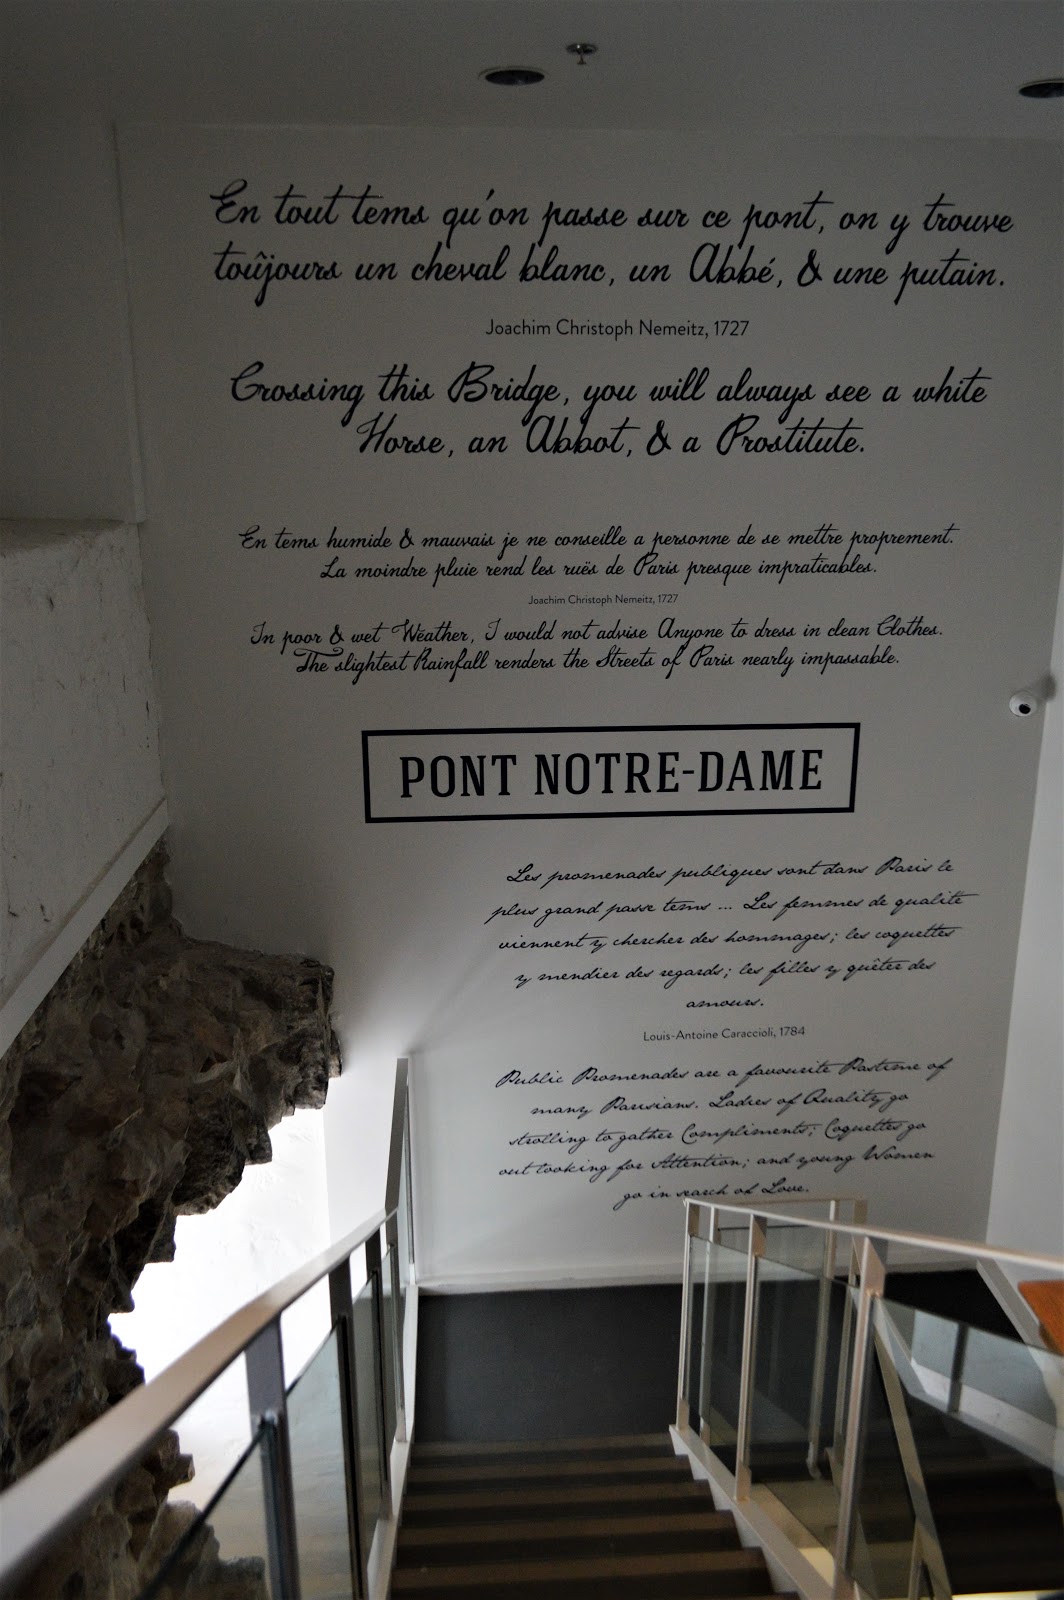 En tout tems qu'on passe sur ce pont, on y trouve
toûjours un cheval blanc, un Abbé, & une putain.
Joachim Christoph Nemeitz, 1727
Crossing this Bridge, you will always see a white
Horse, an Abbot, & a Prostitute.
En tems humide & mauvais je ne conseille a personne de se mettre proprement.
La moindre pluie rend les ruës de Paris presque impraticables.
Joachim Christoph Nemeitz, 1727
In poor & wet Weather, I would not advise Anyone to dress in clean Clothes.
The slightest Rainfall renders the Streets of Paris nearly impassable.
PONT NOTRE-DAME
Les promenades publiques sont dans Paris le
plus grand passe tems ... Les femmes de qualité
viennent y chercher des hommages; les coquettes
y mendier des regards; les filles y quêter des
amours.
Louis-Antoine Caraccioli, 1784
Public Promenades are a favourite Pastime of
many Parisians. Ladies of Quality go
strolling to gather Compliments; Coquettes go
out looking for Attention; and young Women
go in search of Love.